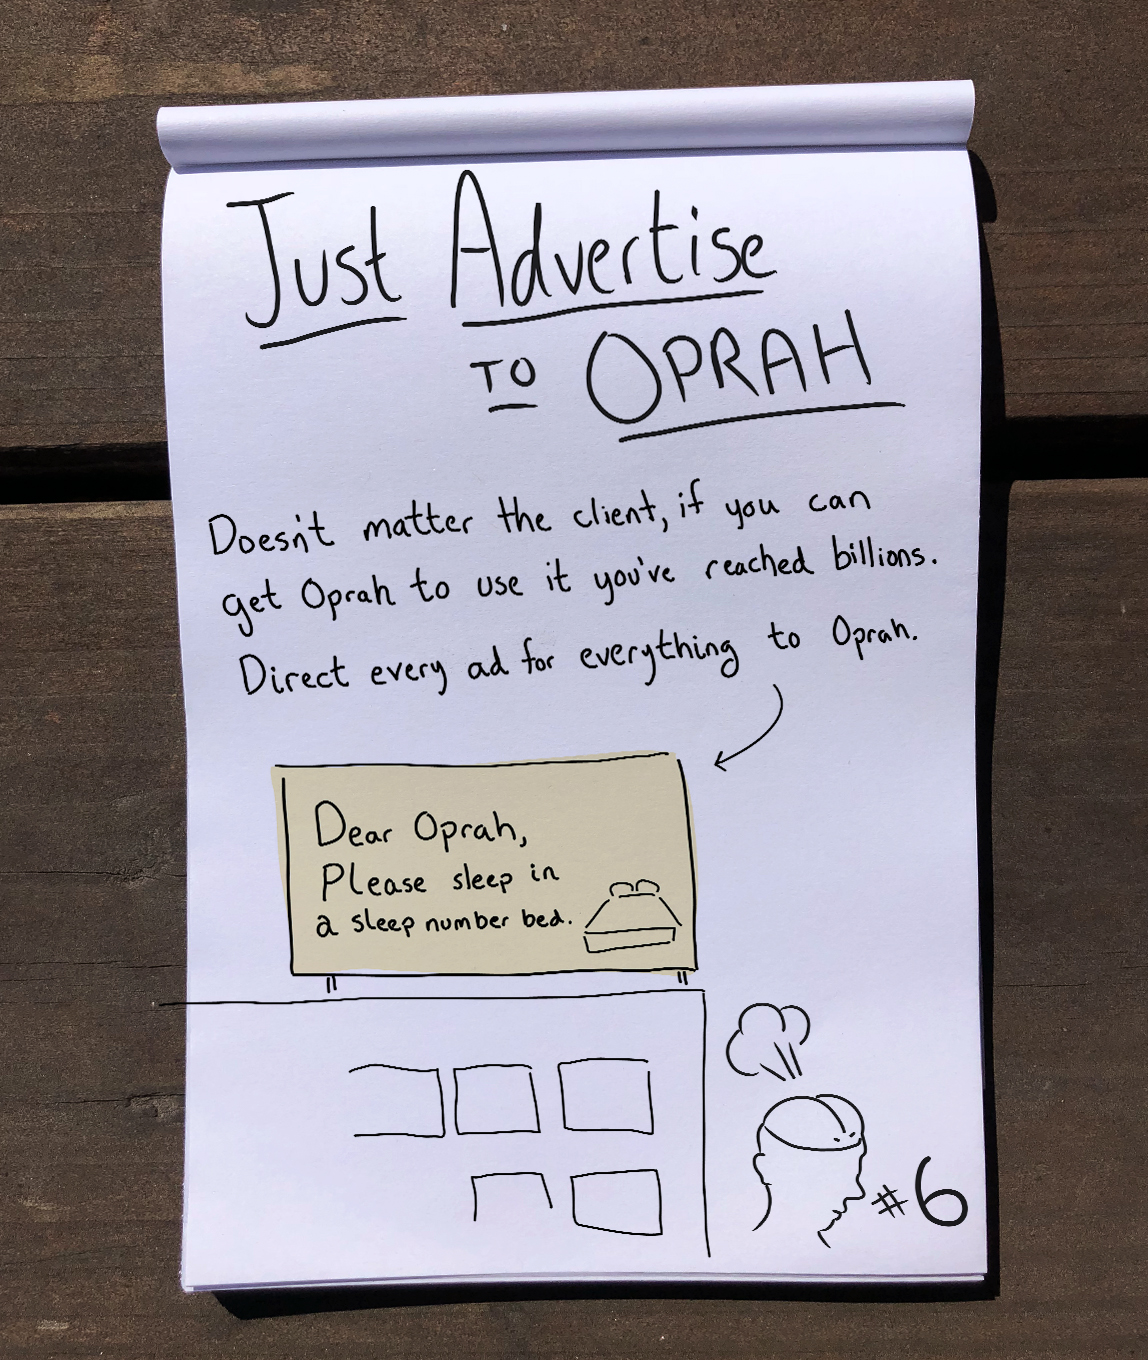 Just Advertise
TO OPRAH
Doesn't matter the client, if you can
get Oprah to use it you've reached billions.
Direct every ad for everything to Oprah.
Dear Oprah,
Please sleep in
a sleep number bed.
#6